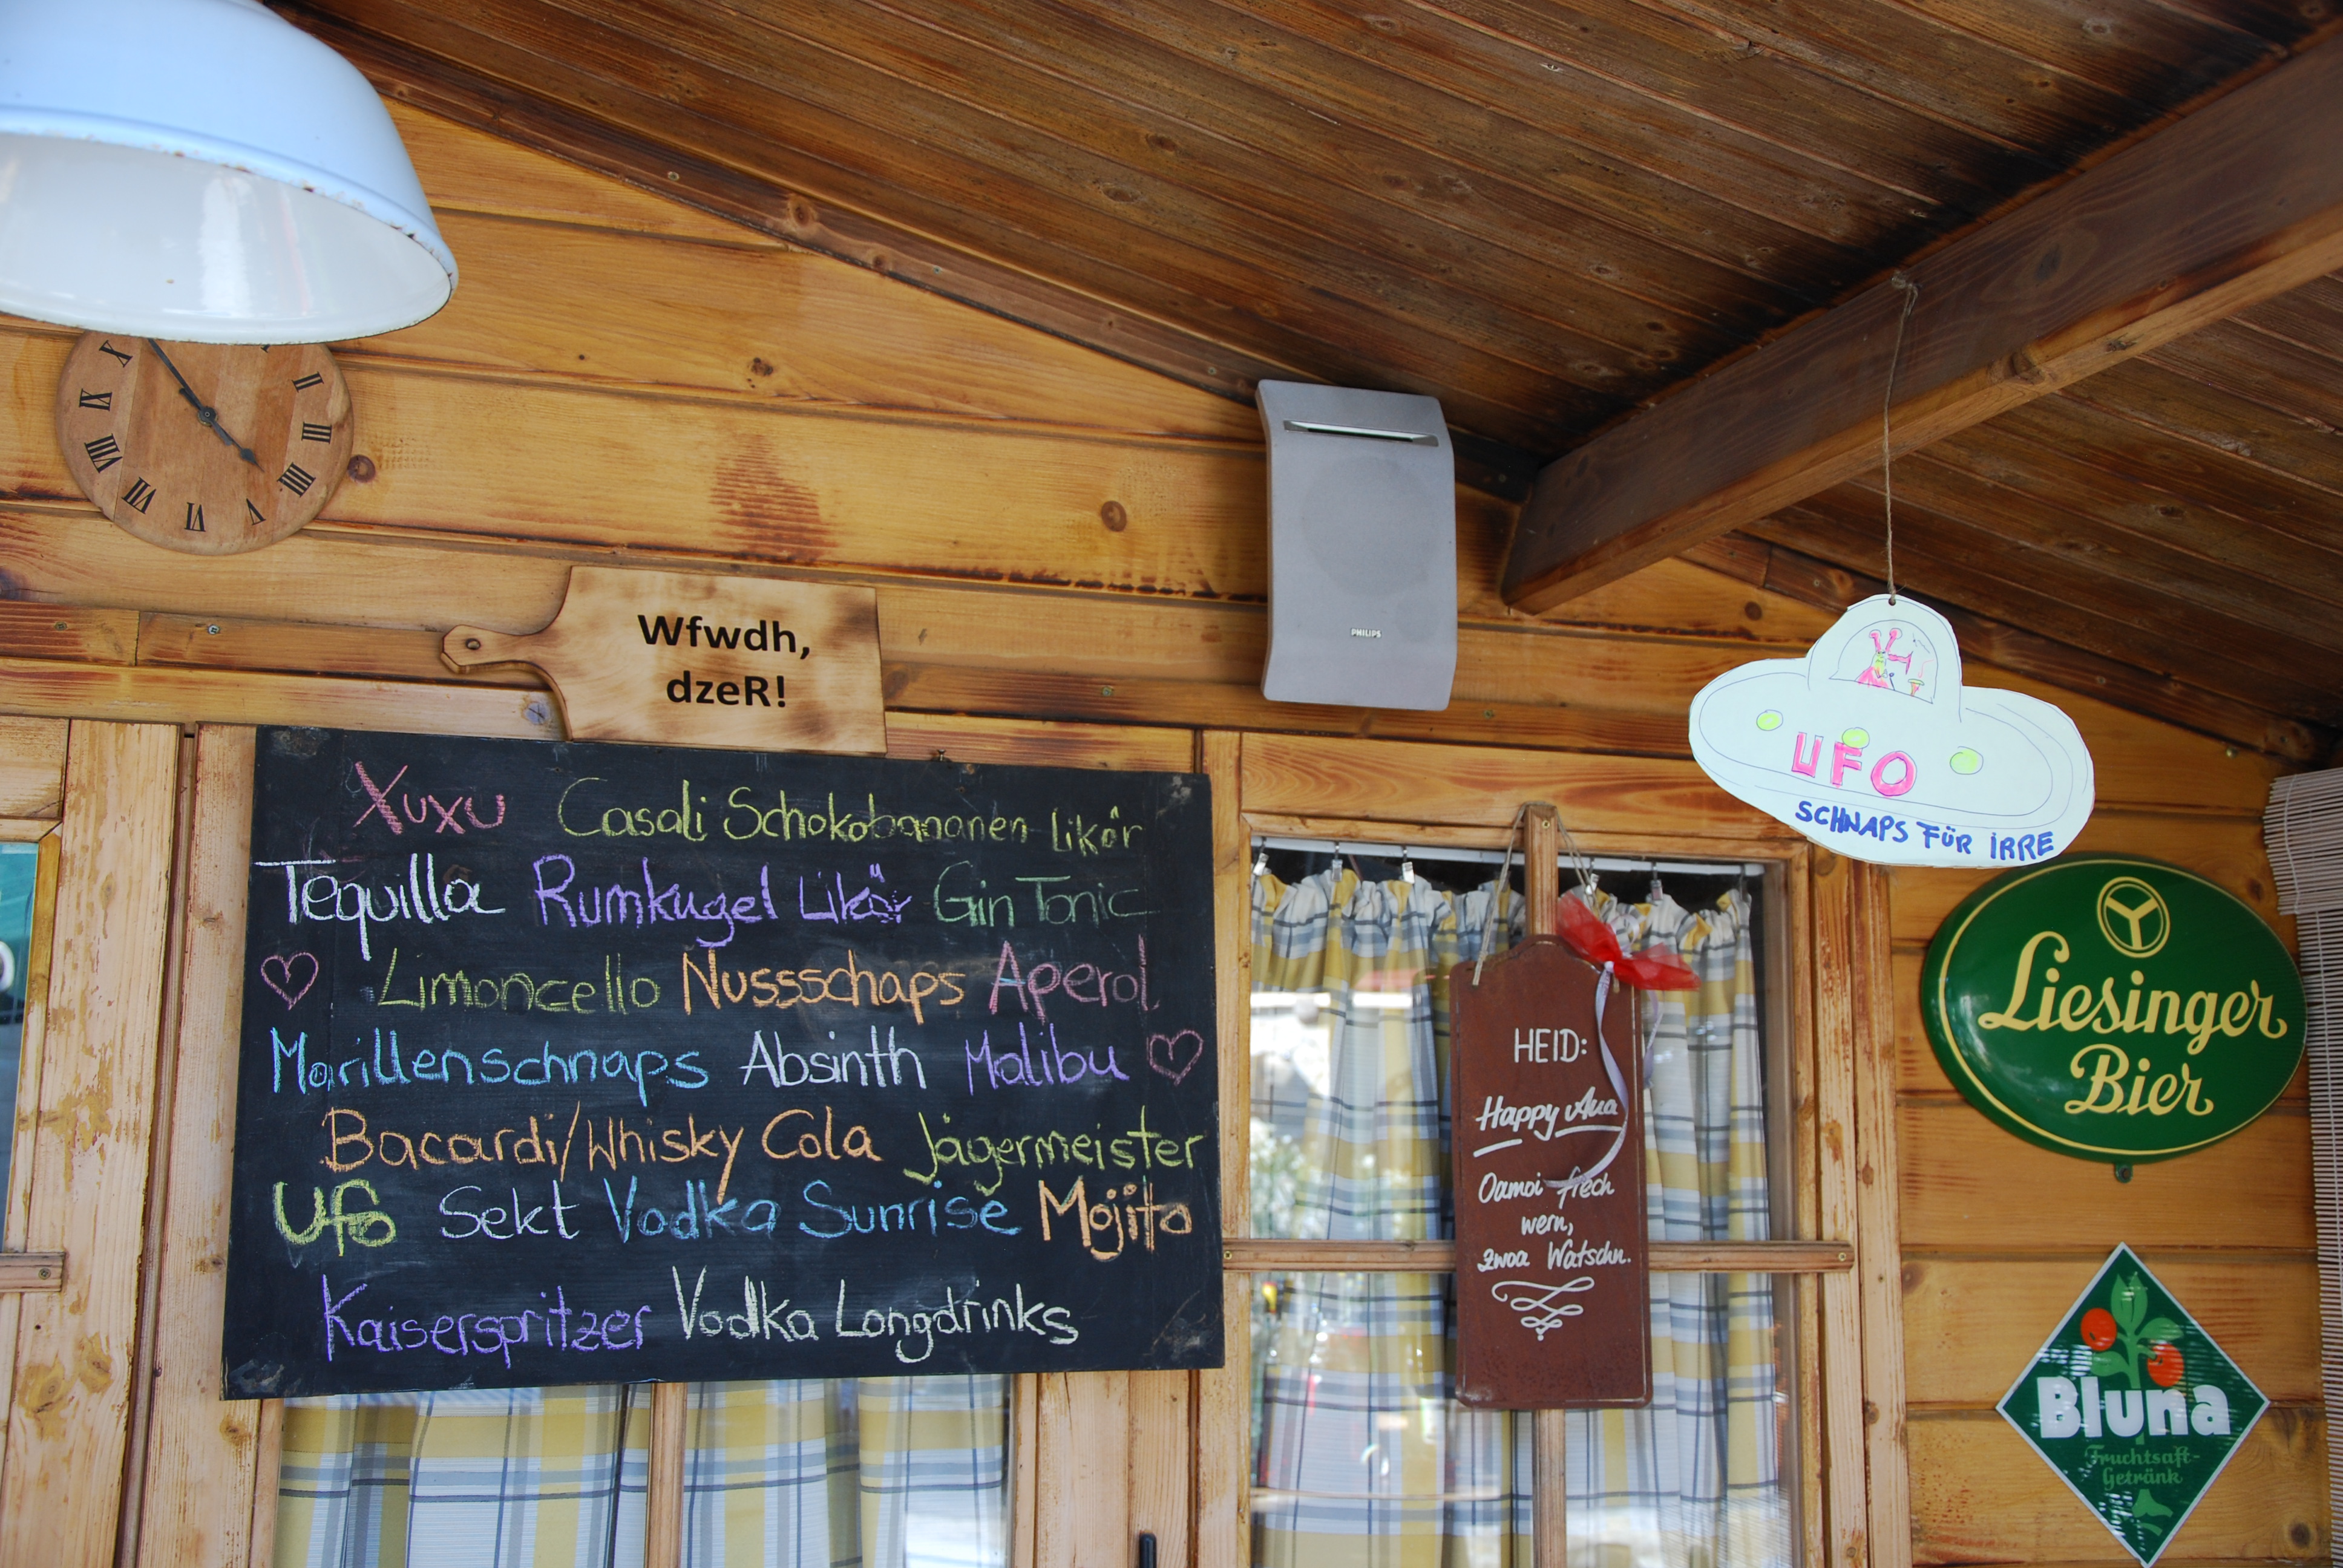 X
IX
VIII
VII
VI
V
IIII
III
II
Wfwdh,
dzeR!
PHILIPS
Xuxu Casali Schokobananen Likör
Tequilla Rumkugel Likör Gin Tonic
Limoncello Nussschaps Aperol
Marillenschnaps Absinth Malibu
Bacardi/Whisky Cola Jägermeister
Ufo Sekt Vodka Sunrise Mojito
Kaiserspritzer Vodka Longdrinks
HEID:
Happy Aua
Oamoi frech
wern,
zwoa Watschn.
UFO
SCHNAPS FÜR IRRE
Liesinger
Bier
Bluna
Fruchtsaft-
Getränk